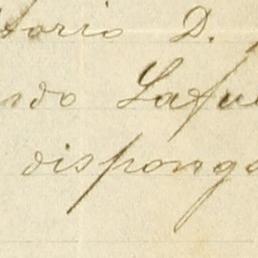 torio D.
ndo Lafu
disponga